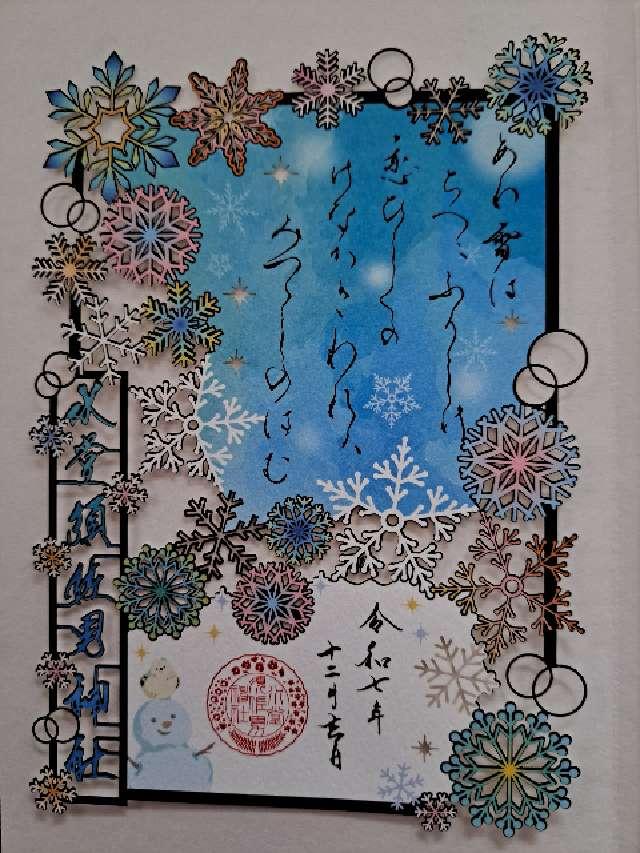 あわ雪は
ちへにふりしけ
恋ひしくの
けなかきわれは
みつつしのはむ
水堂須佐男神社
令和七年
十二月吉日